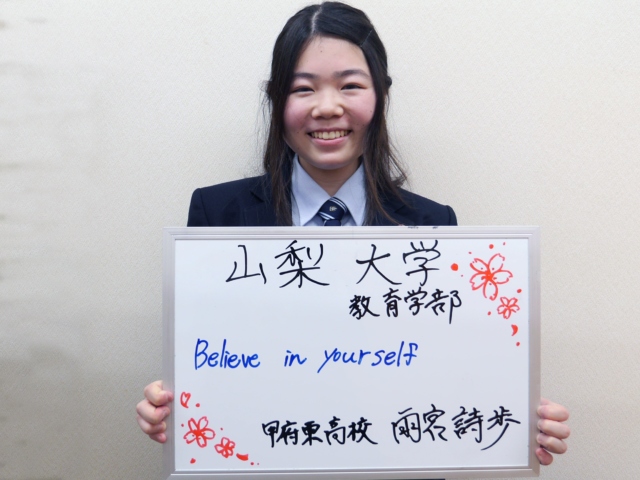 山梨 大学
教育学部
Believe in yourself
甲府東高校 雨宮詩歩